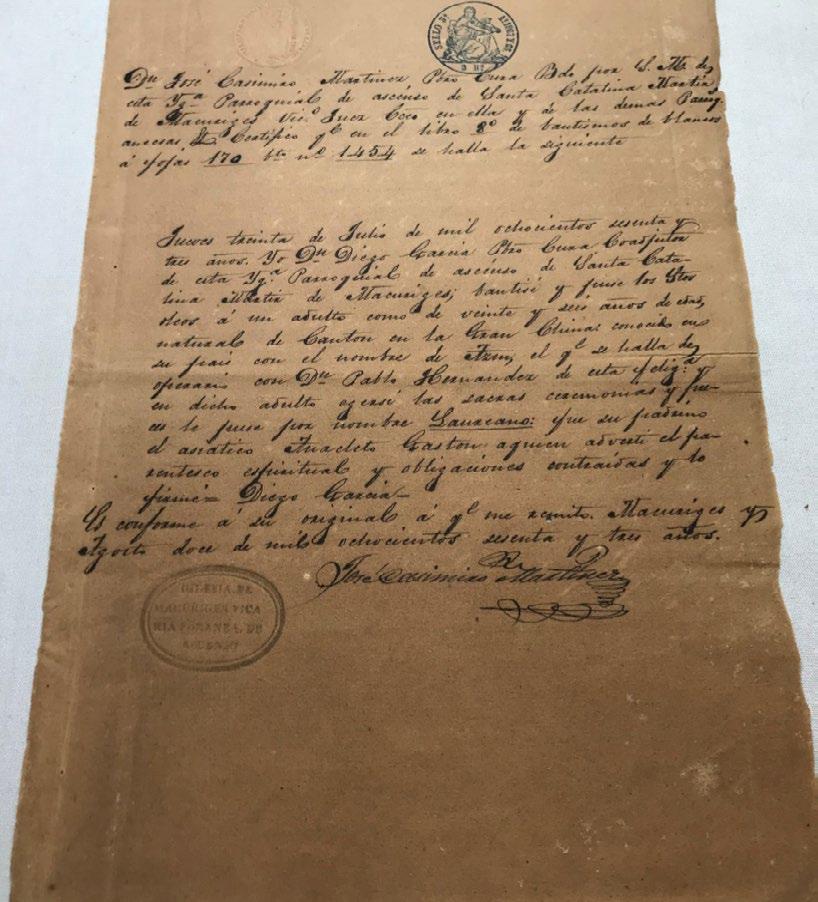 SELLO 3º
Dn José Casimiro Martinez Pbro Cura Bdo por S. M. de
esta Yg.ª Parroquial de ascenso de Santa Catalina Martir
de Macuriges Vic.º Juez Ecco en ella y de las demas Parroq.
anecsas Certifico q.e en el libro 8º de bautismos de blancos
á fojas 170 bto nº 1454 se halla la siguiente
Jueves treinta de Julio de mil ochocientos sesenta y
tres años. Yo Dn Diego Garcia Pbro Cura Coadjutor
de esta Yg.ª Parroquial de ascenso de Santa Cata-
lina Martir de Macuriges; bautisé y puse los Stos
oleos á un adulto como de veinte y seis años de edad,
natural de Canton en la Gran China: conocido en
su pais con el nombre de el q.e se halla de
operario con Dn Pablo Hernandez de esta felig.ª y
en dicho adulto egersí las sacras ceremonias y pre-
ces le puse por nombre Laureano: fue su padrino
el asiático Anacleto Gaston: aquien advertí el pa-
rentesco espiritual y obligaciones contraidas y lo
firmé = Diego Garcia -
Es conforme á su original á q.e me remito. Macuriges y
Agosto doce de mil ochocientos sesenta y tres años.
José Casimiro Martinez
IGLESIA DE
MACURIGES VICA
RIA FORANEA DE
ASCENSO